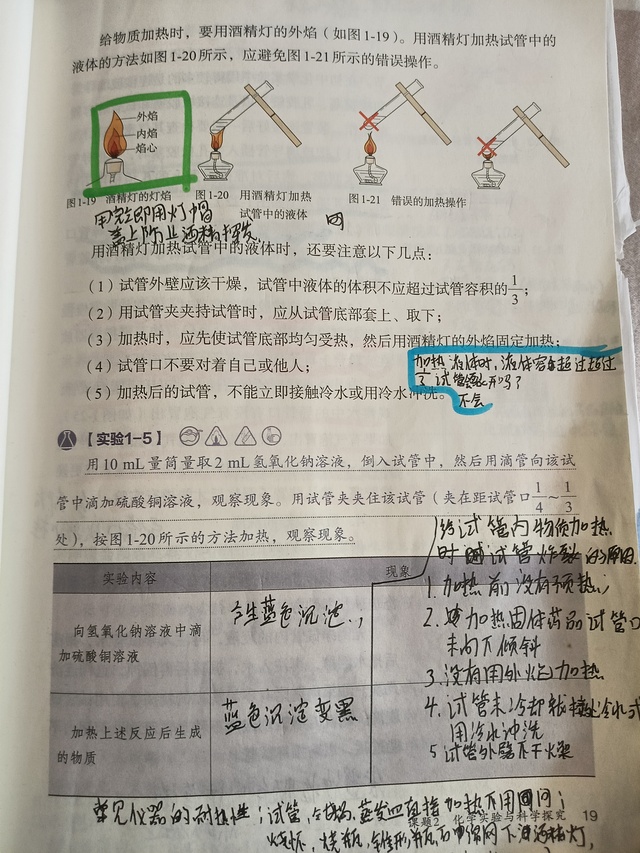 给物质加热时，要用酒精灯的外焰（如图1-19）。用酒精灯加热试管中的
液体的方法如图1-20所示，应避免图1-21所示的错误操作。
外焰
内焰
焰心
图1-19 酒精灯的灯焰
图1-20 用酒精灯加热
试管中的液体
图1-21 错误的加热操作
用完立即用灯帽
盖上防止酒精挥发
用酒精灯加热试管中的液体时，还要注意以下几点：
（1）试管外壁应该干燥，试管中液体的体积不应超过试管容积的1/3；
（2）用试管夹夹持试管时，应从试管底部套上、取下；
（3）加热时，应先使试管底部均匀受热，然后用酒精灯的外焰固定加热；
（4）试管口不要对着自己或他人；
（5）加热后的试管，不能立即接触冷水或用冷水冲洗。
加热液体时，液体容积超过超过
1/3试管会裂开吗？
不会
【实验1-5】
用10 mL量筒量取2 mL氢氧化钠溶液，倒入试管中，然后用滴管向该试
管中滴加硫酸铜溶液，观察现象。用试管夹夹住该试管（夹在距试管口1/4～1/3
处），按图1-20所示的方法加热，观察现象。
实验内容
现象
向氢氧化钠溶液中滴
加硫酸铜溶液
产生蓝色沉淀
加热上述反应后生成
的物质
蓝色沉淀变黑
给试管内物质加热
时 试管炸裂的原因
1.加热前没有预热；
2. 加热固体药品试管口
未向下倾斜
3.没有用外焰加热
4.试管未冷却就接触冷水或
用冷水冲洗
5 试管外壁不干燥
常见仪器的耐热性；试管，坩埚，蒸发皿直接加热不用网；
烧杯，烧瓶，锥形瓶
课题2 化学实验与科学探究
19